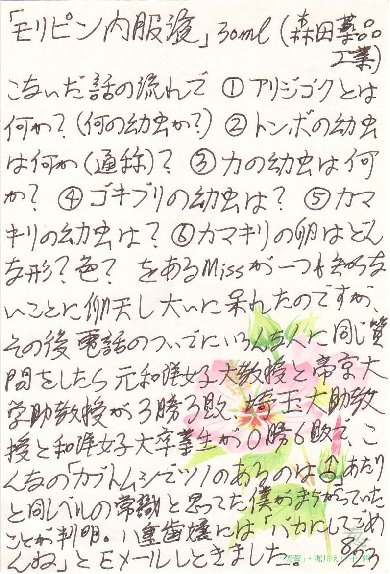 「モリピン内服液」30ml(森田薬品
工業)
こないだ話の流れで ①アリジゴクとは
何か?(何の幼虫か?) ②トンボの幼虫
は何か(通称)? ③カの幼虫は何
か? ④ゴキブリの幼虫は? ⑤カマ
キリの幼虫は? ⑥カマキリの卵はどん
な形?色? をあるMissが一つも知らな
いことに仰天し大いに呆れたのですが、
その後電話のついでにいろんな人に同じ質
問をしたら元和洋女子大教授と帝京大
学助教授が3勝3敗、埼玉大助教
授と和洋女子大卒業生が0勝6敗。こ
んなの「カブトムシでツノのあるのは」あたり
と同レベルの常識と思ってた僕がまちがってた
ことが判明。八重歯嬢には「バカにしてごめ
んね」とEメールしときました。